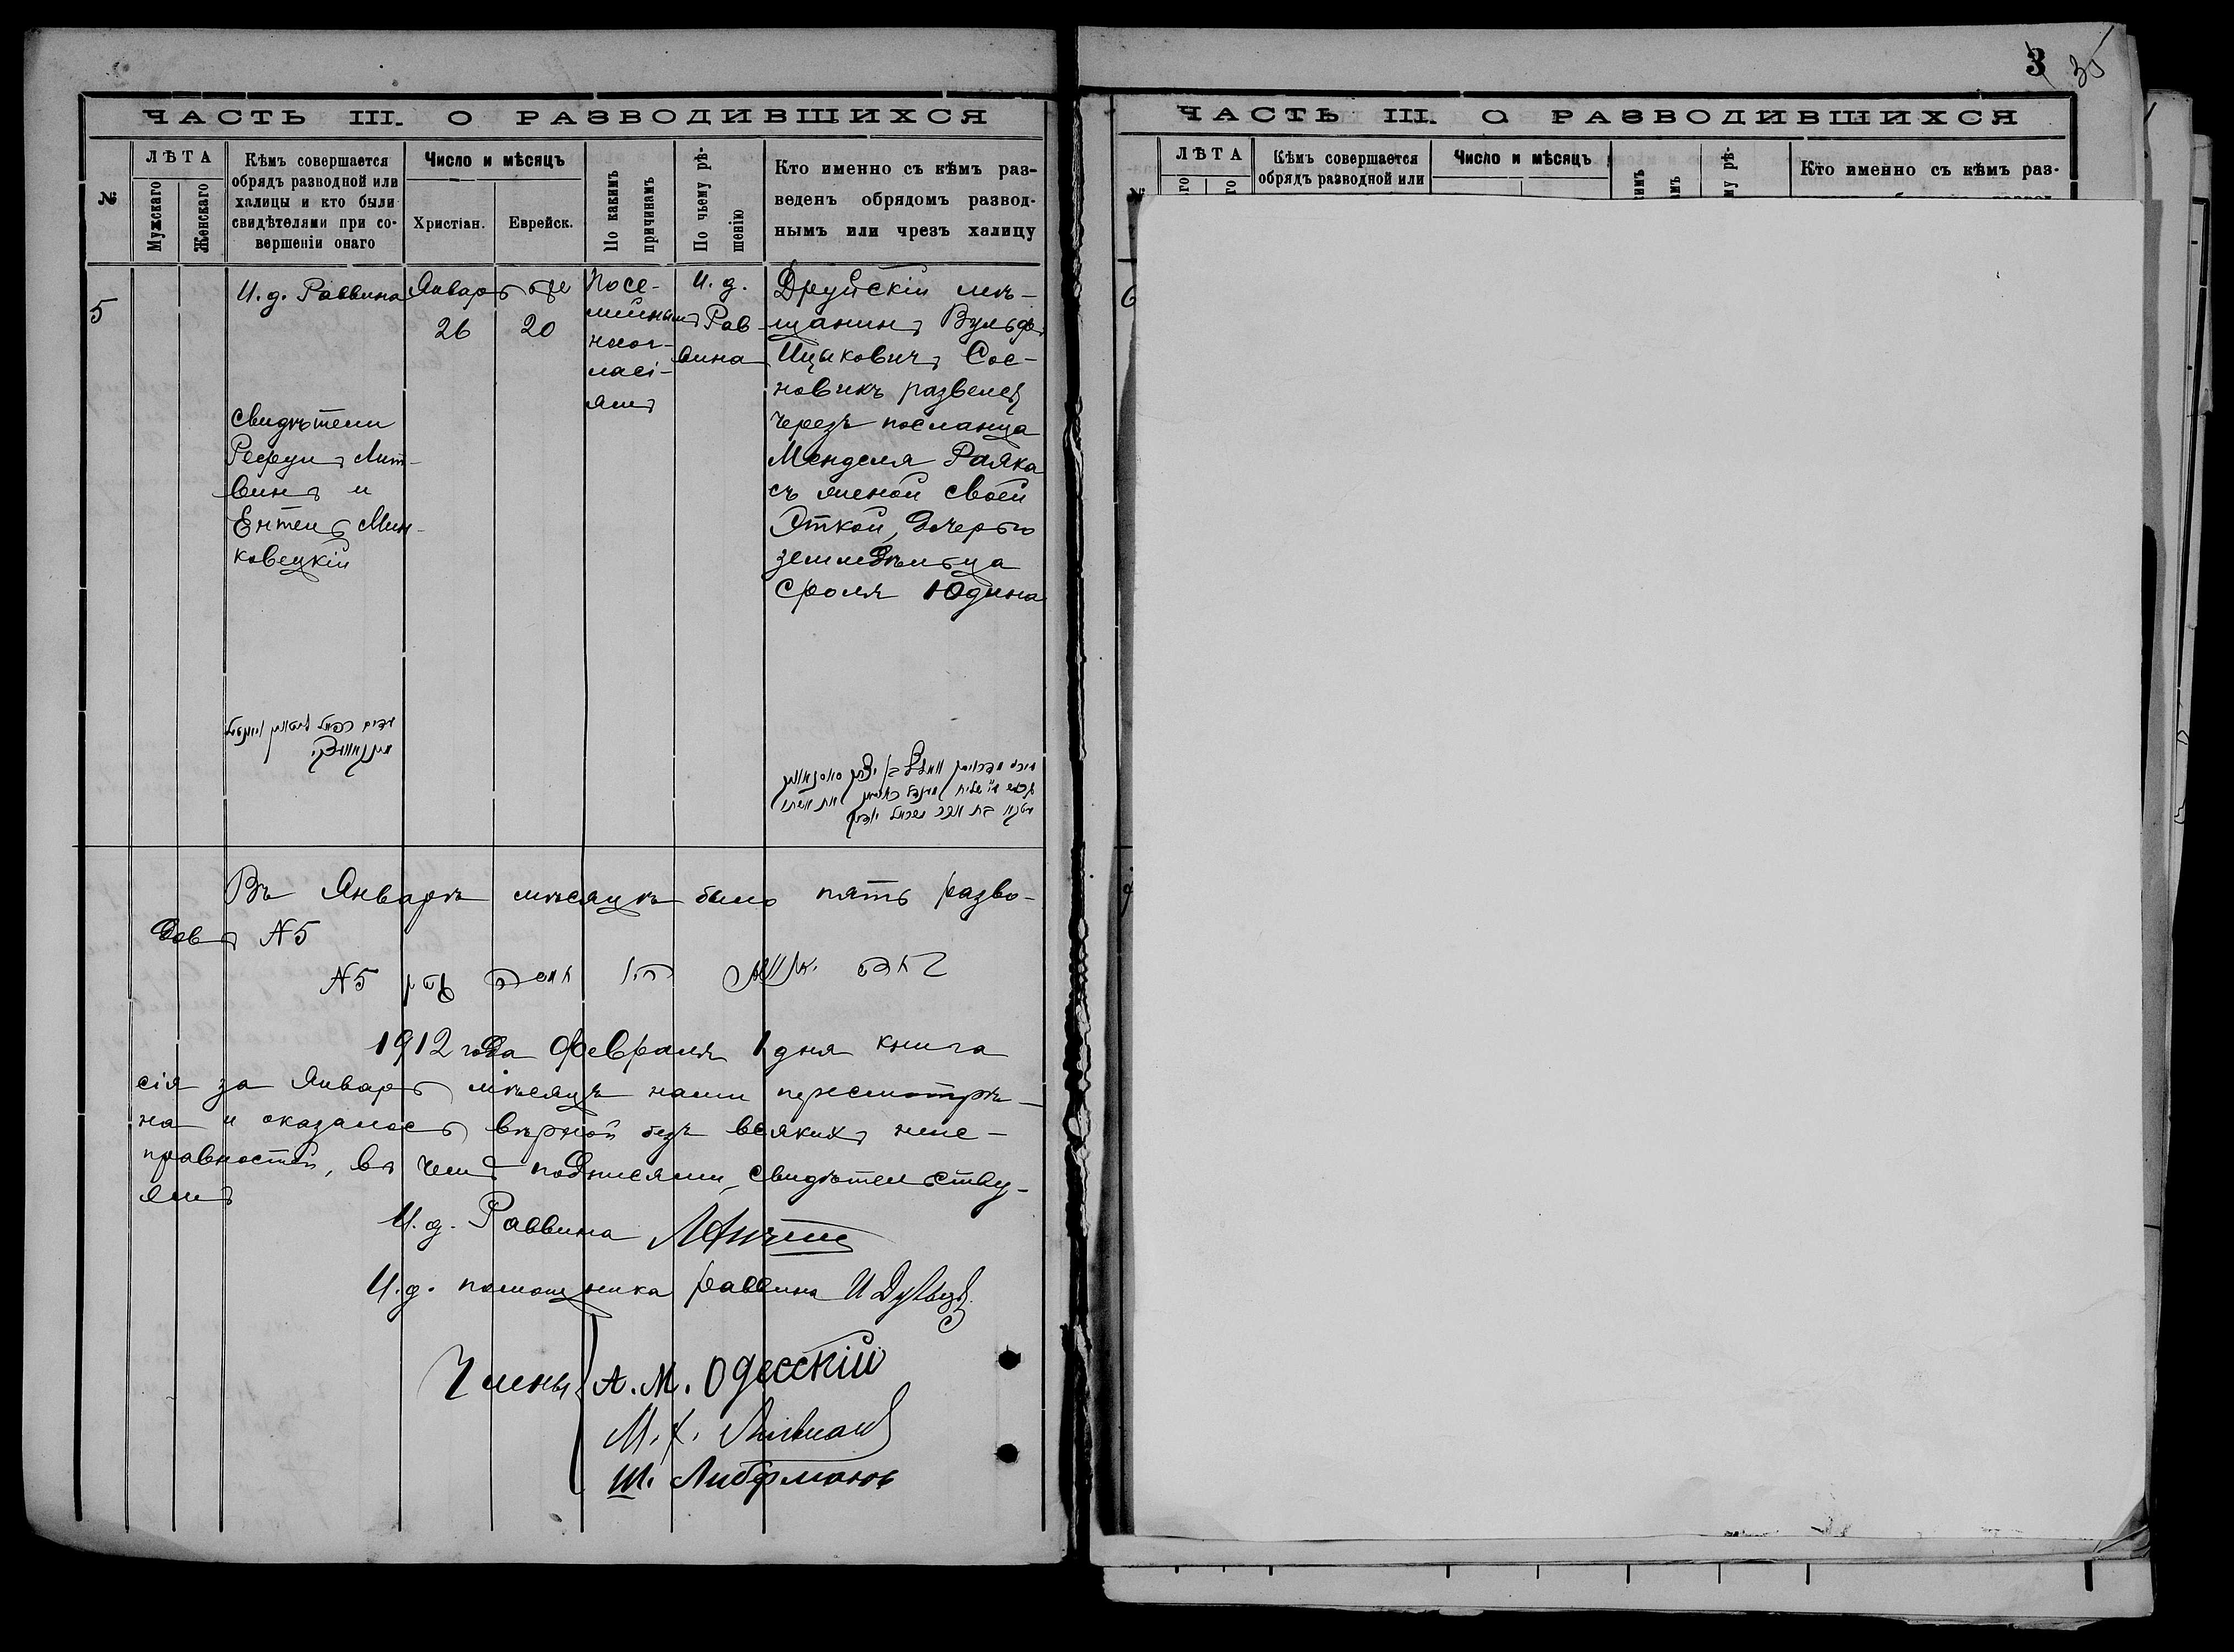 3 35
ЧАСТЬ III. О РАЗВОДИВШИХСЯ
№
ЛѢТА
Мужскаго
Женскаго
Кѣмъ совершается
обрядъ разводной или
халицы и кто были
свидѣтелями при со-
вершеніи онаго
Число и мѣсяцъ
Христіан.
Еврейск.
По какимъ
причинамъ
По чьему рѣ-
шенію
Кто именно съ кѣмъ раз-
веденъ обрядомъ развод-
нымъ или чрезъ халицу
5
И. д. Раввина
свидѣтели
Рефуил Лит-
вин и
Ентель Мин-
ковецкій
Январь
26
שבט
20
По се-
мейным
несог-
ласі-
ям
И. д.
Рав-
вина
Друйскій мѣ-
щанин Вульф
Ицкович Сос-
новикъ развелся
черезъ посланца
Менделя Раяка
съ женой своей
Эткой, дочерью
земледѣльца
Сроля Юдина
עדים רפאל ליטווין ויענטיל
מינקאוועצקי
Въ Январѣ мѣсяцѣ было пять разво-
дов №5
בחדש יאנואר היו חמשה גטין №5
1912 года Февраля 1 дня книга
сія за Январь мѣсяцъ нами пересмотрѣ-
на и оказалась вѣрной безъ всяких неис-
правностей, в чем подписями свидѣтельству-
ем
И. д. Раввина
И. д. помощника раввина
Члены А. М. Одесскій
М. Х.
Ш. Либерманъ
ЧАСТЬ III. О РАЗВОДИВШИХСЯ
№
ЛѢТА
Кѣмъ совершается
обрядъ разводной или
Число и мѣсяцъ
Кто именно съ кѣмъ раз-
6